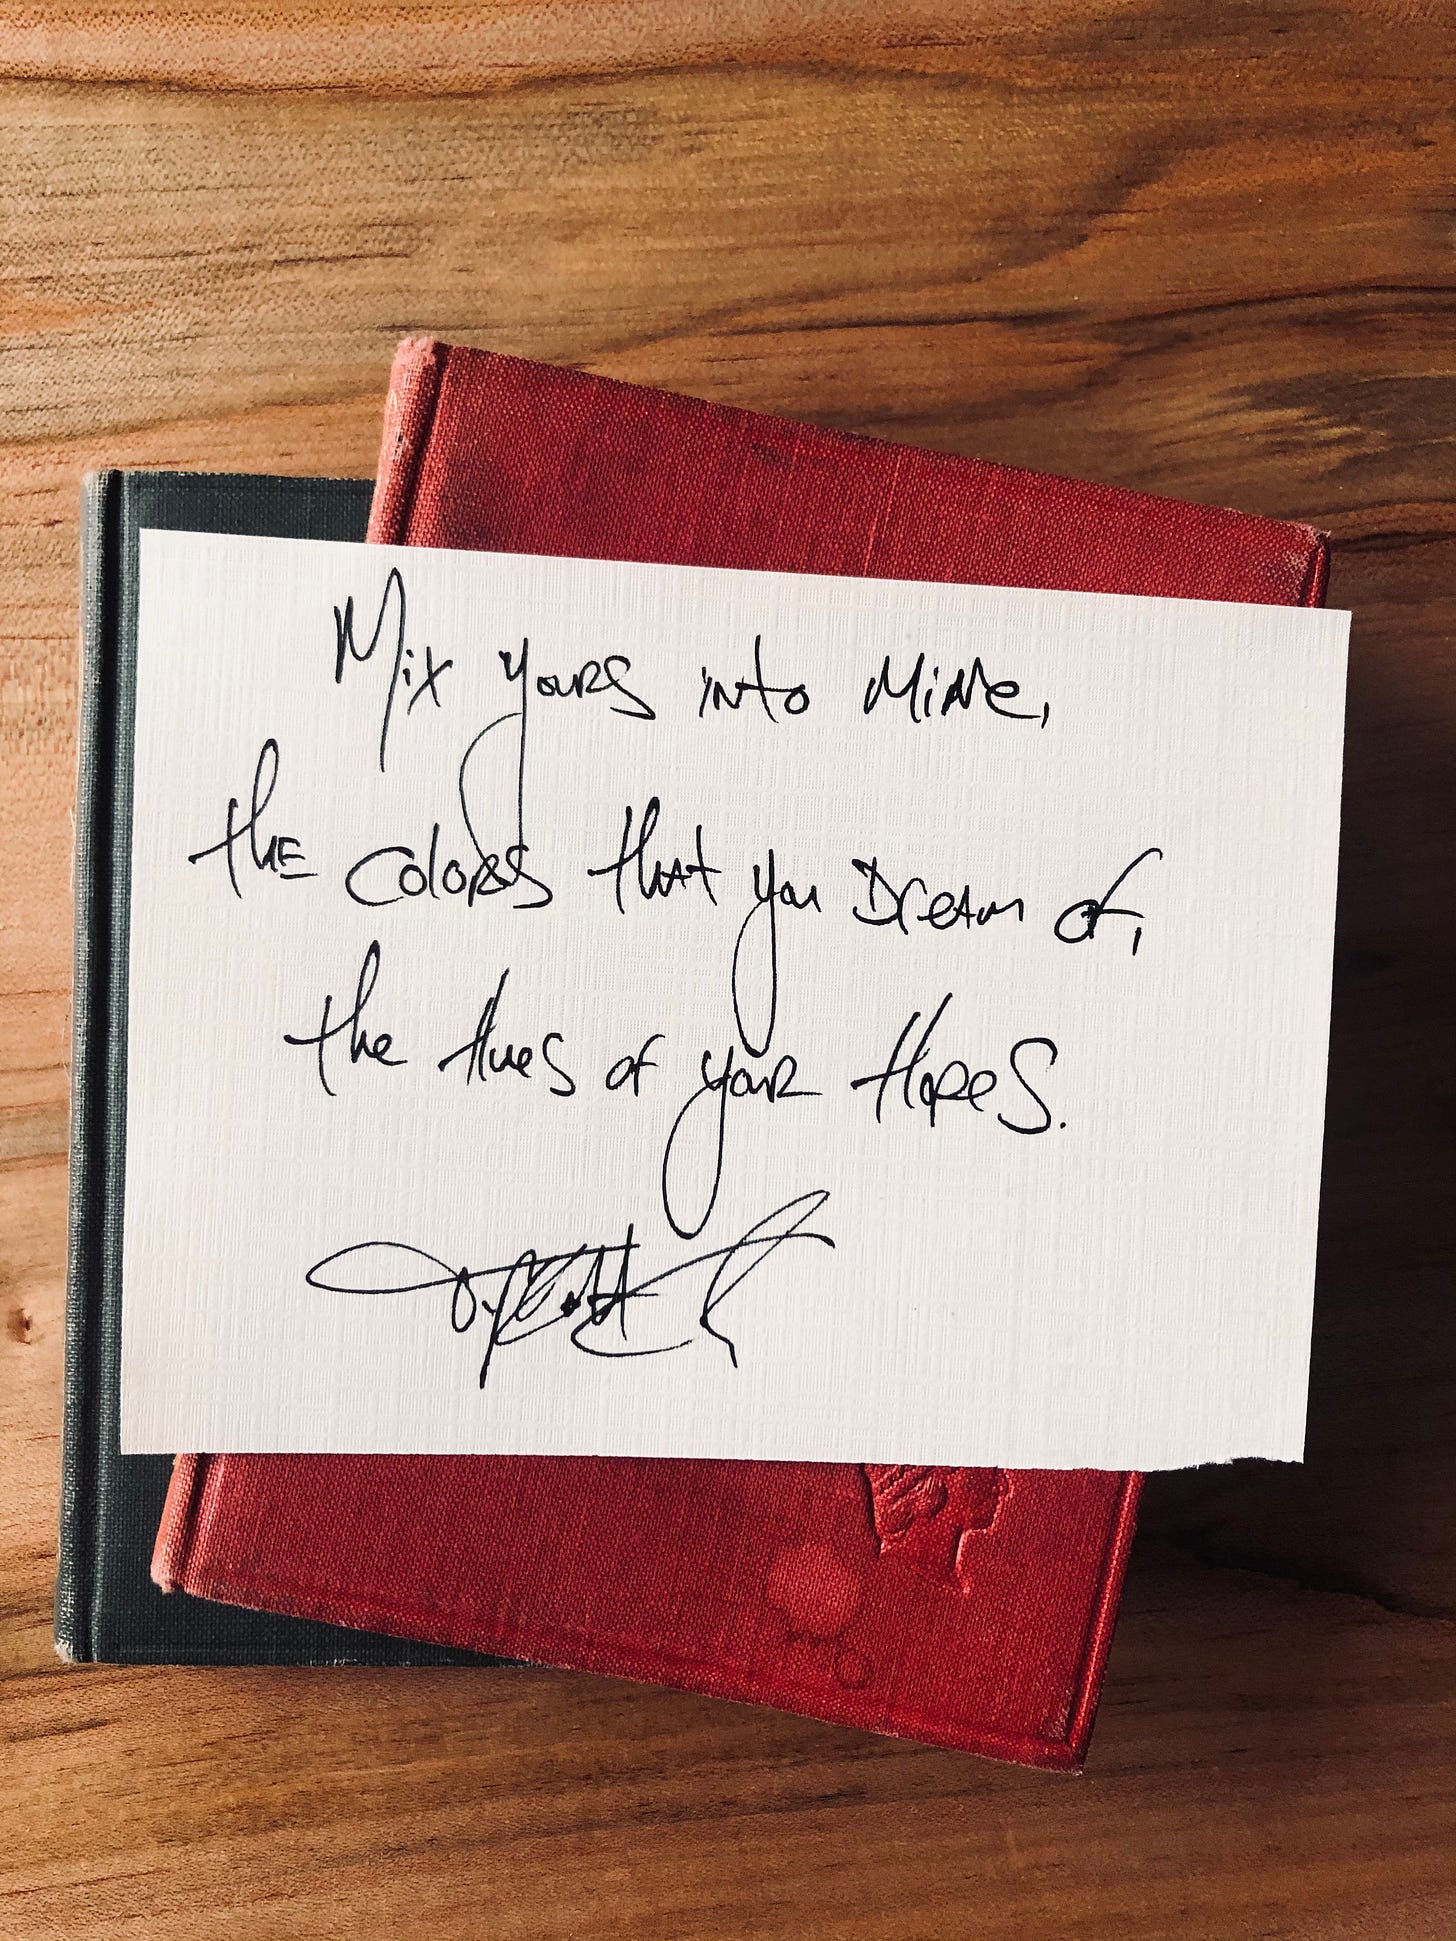 Mix yours into Mine,
the colors that you Dream of,
the Hues of your Hopes.